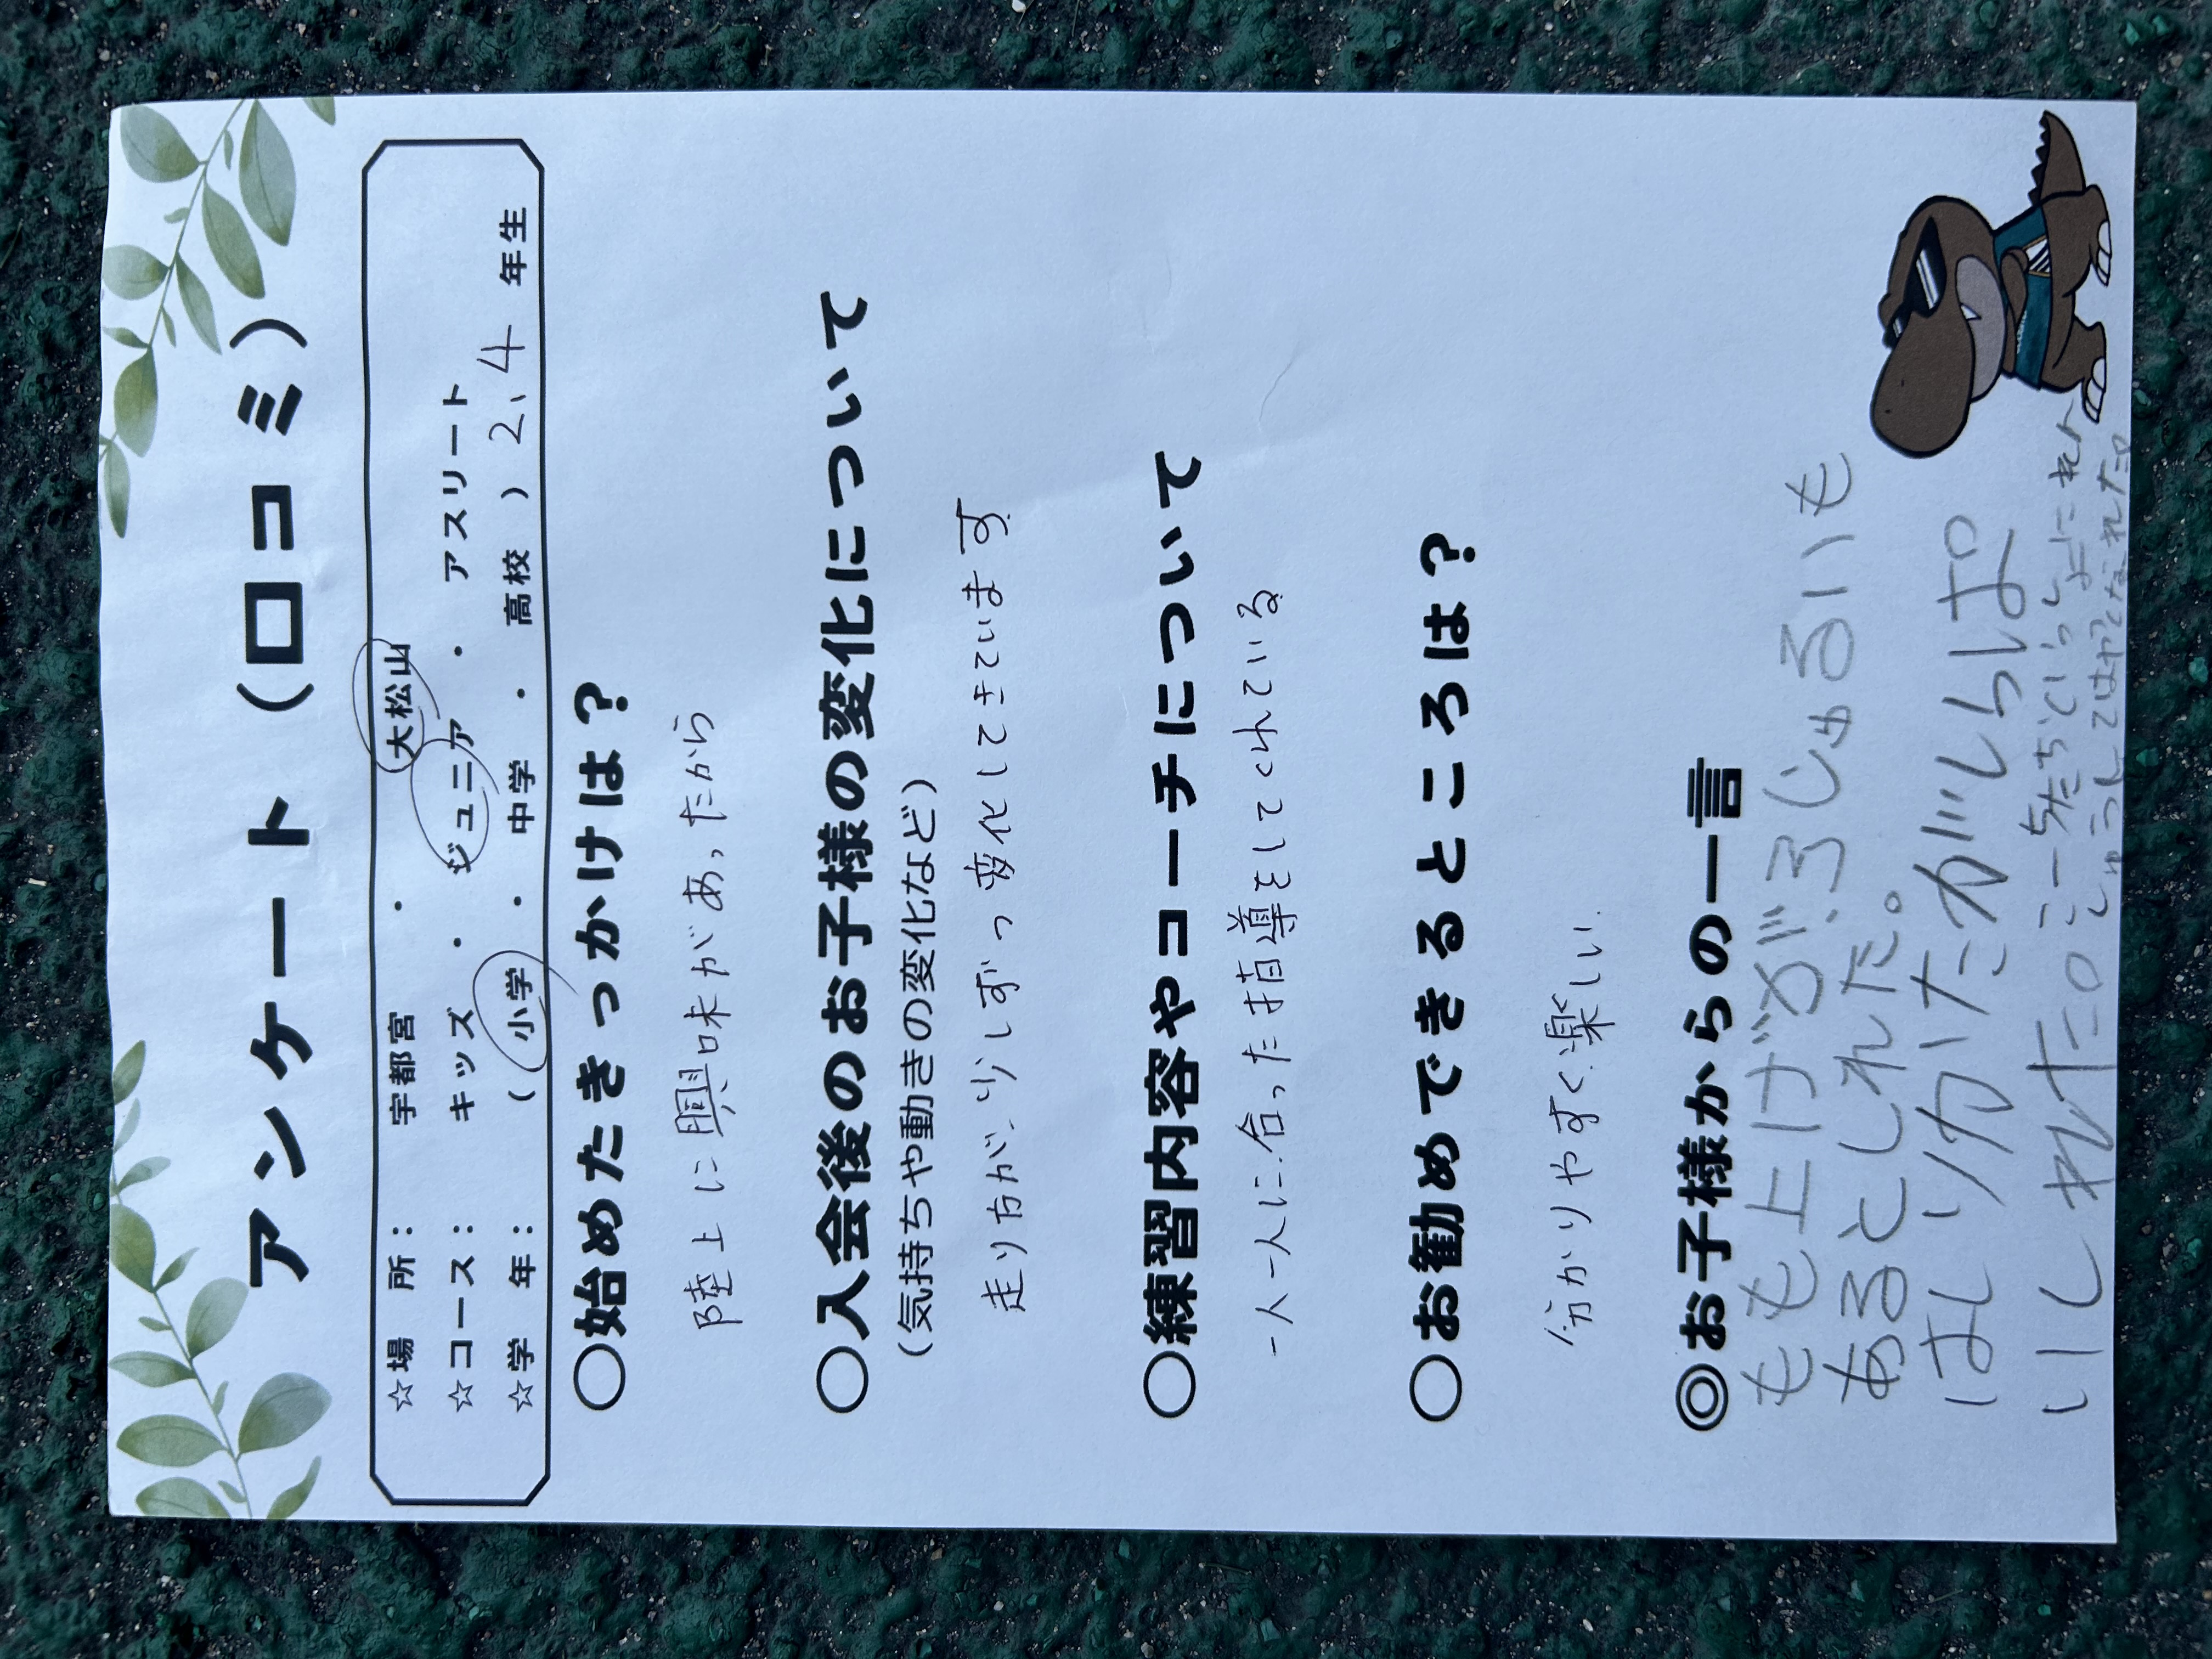 アンケート（口コミ）
☆場　所：　宇都宮　・　大松山
☆コース：　キッズ　・　ジュニア　・　アスリート
☆学　年：　（　小学　・　中学　・　高校　）2、4　年生
○始めたきっかけは？
陸上に興味があったから
○入会後のお子様の変化について
（気持ちや動きの変化など）
走り方が、少しずつ変化してきています
○練習内容やコーチについて
一人一人に合った指導をしてくれている
○お勧めできるところは？
分かりやすく楽しい
◎お子様からの一言
もも上げが3じゅるいも
あるとしれた。
はしりかたがいらぱ
いしれた。
こーちたちといっしょにれん
しゅうしてはやくなれた。